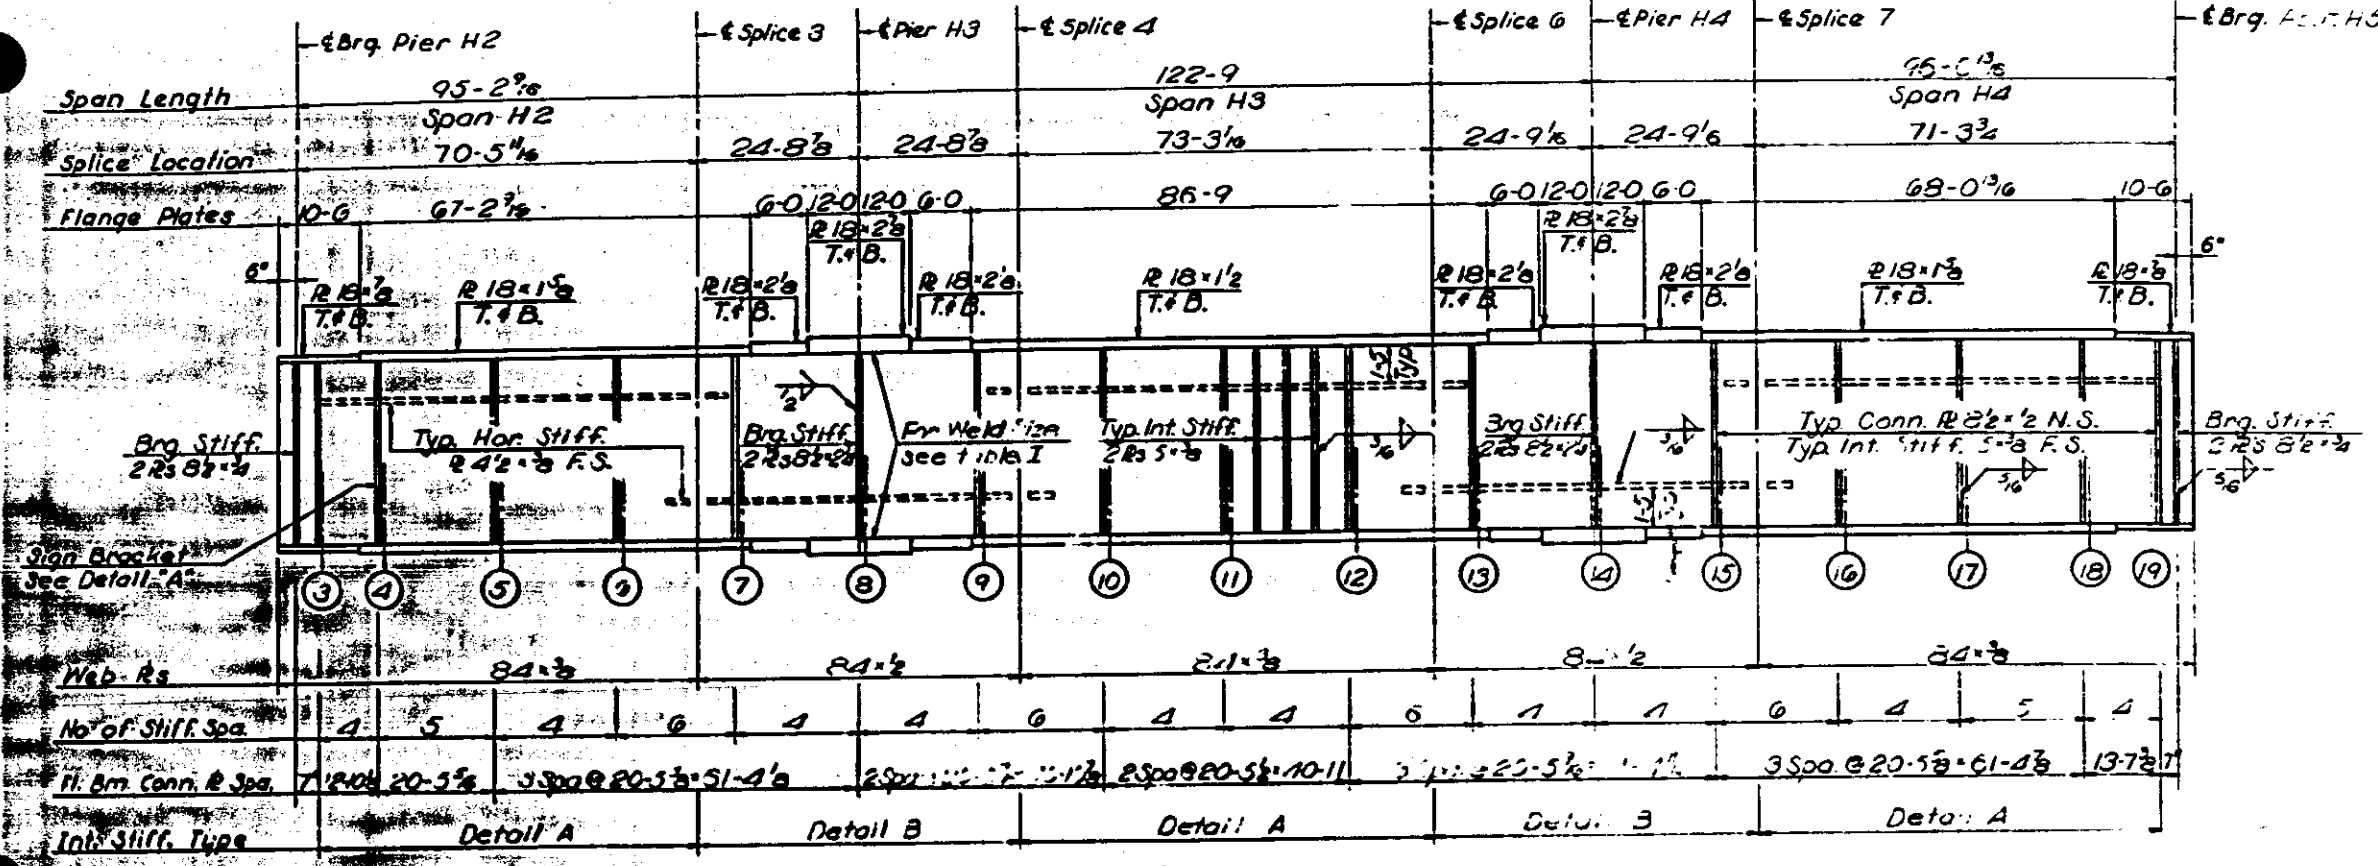 ℄ Brg. Pier H2
℄ Splice 3
℄ Pier H3
℄ Splice 4
℄ Splice 6
℄ Pier H4
℄ Splice 7
℄ Brg.
Span Length
95-2 9/16
122-9
Span H2
Span H3
Span H4
Splice Location
70-5 11/16
24-8 7/8
24-8 7/8
73-3 1/16
24-9 1/16
24-9 1/16
71-3 3/4
Flange Plates
10-6
67-2 9/16
6-0
12-0
12-0
6-0
86-9
6-0
12-0
12-0
6-0
68-0 13/16
10-6
6"
℄ 18×7/8
T. & B.
℄ 18×1 5/8
T. & B.
℄ 18×2 1/8
T. & B.
℄ 18×2 7/8
T. & B.
℄ 18×2 1/8
T. & B.
℄ 18×1 1/2
T. & B.
℄ 18×2 1/8
T. & B.
℄ 18×2 7/8
T. & B.
℄ 18×2 1/8
T. & B.
℄ 18×1 5/8
T. & B.
℄ 18×7/8
T. & B.
6"
1-5
Typ.
Brg. Stiff.
2 ℄s 8 1/2×3/4
Typ. Hor. Stiff.
℄ 4 1/2×3/8 F.S.
1/2
Brg. Stiff.
For Weld Size
see table I
Typ. Int. Stiff.
2 ℄s 5×3/8
5/16
Brg Stiff.
5/16
Typ. Conn. ℄ 8 1/2×1/2 N.S.
Typ. Int. Stiff. 5×3/8 F.S.
5/16
Brg. Stiff.
2 ℄s 8 1/2×3/4
5/16
1-5
Sign Bracket
See Detail "A"
3
4
5
6
7
8
9
10
11
12
13
14
15
16
17
18
19
Web ℄s
84×3/8
84×1/2
84×3/8
84×3/8
No. of Stiff. Spa.
4
5
4
6
4
4
6
4
4
6
4
4
6
4
5
4
Fl. Bm. Conn. ℄ Spa.
7"
20-5 5/16
2 Spa @ 20-5 1/2 = 40-11
3 Spa. @ 20-5 5/8 = 61-4 7/8
13-7 3/8
7"
Int. Stiff. Type
Detail A
Detail B
Detail A
Detail B
Detail A